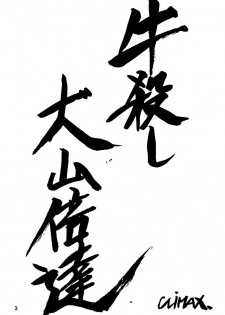 牛殺し
大山倍達
CLIMAX.
3